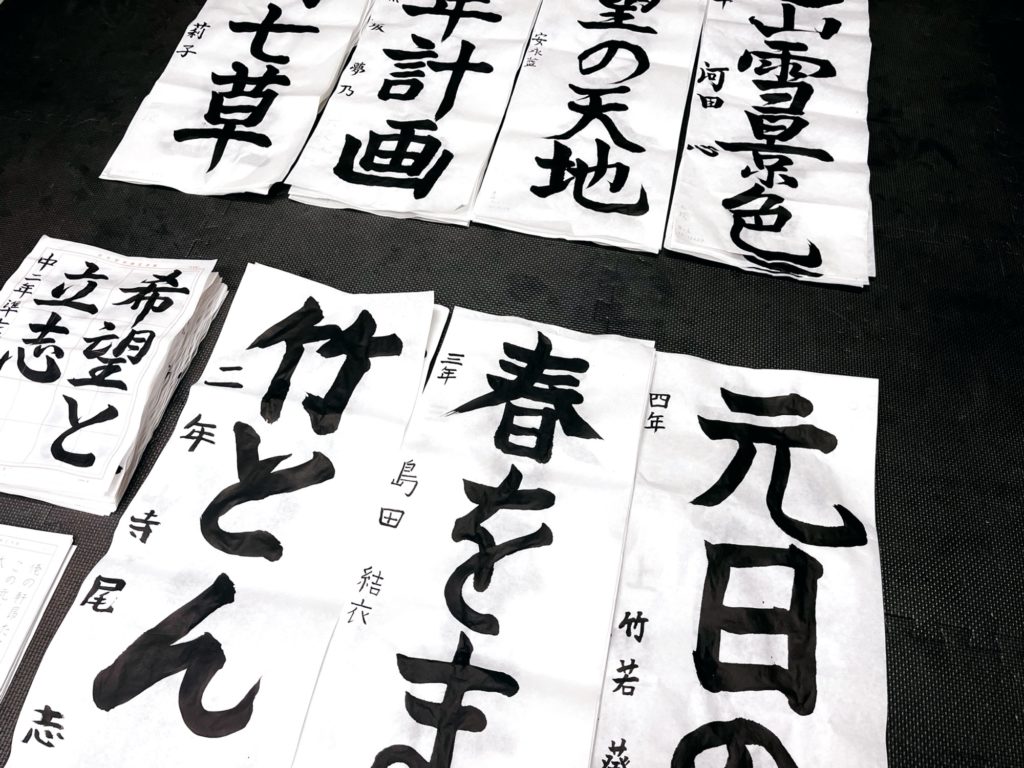 山雪景色
河田 心
望の天地
年計画
夢乃
七草
莉子
元日の
四年
竹若 葵
春をま
三年
島田 結衣
竹とん
二年 寺尾 志
希望と
立志
中二年準